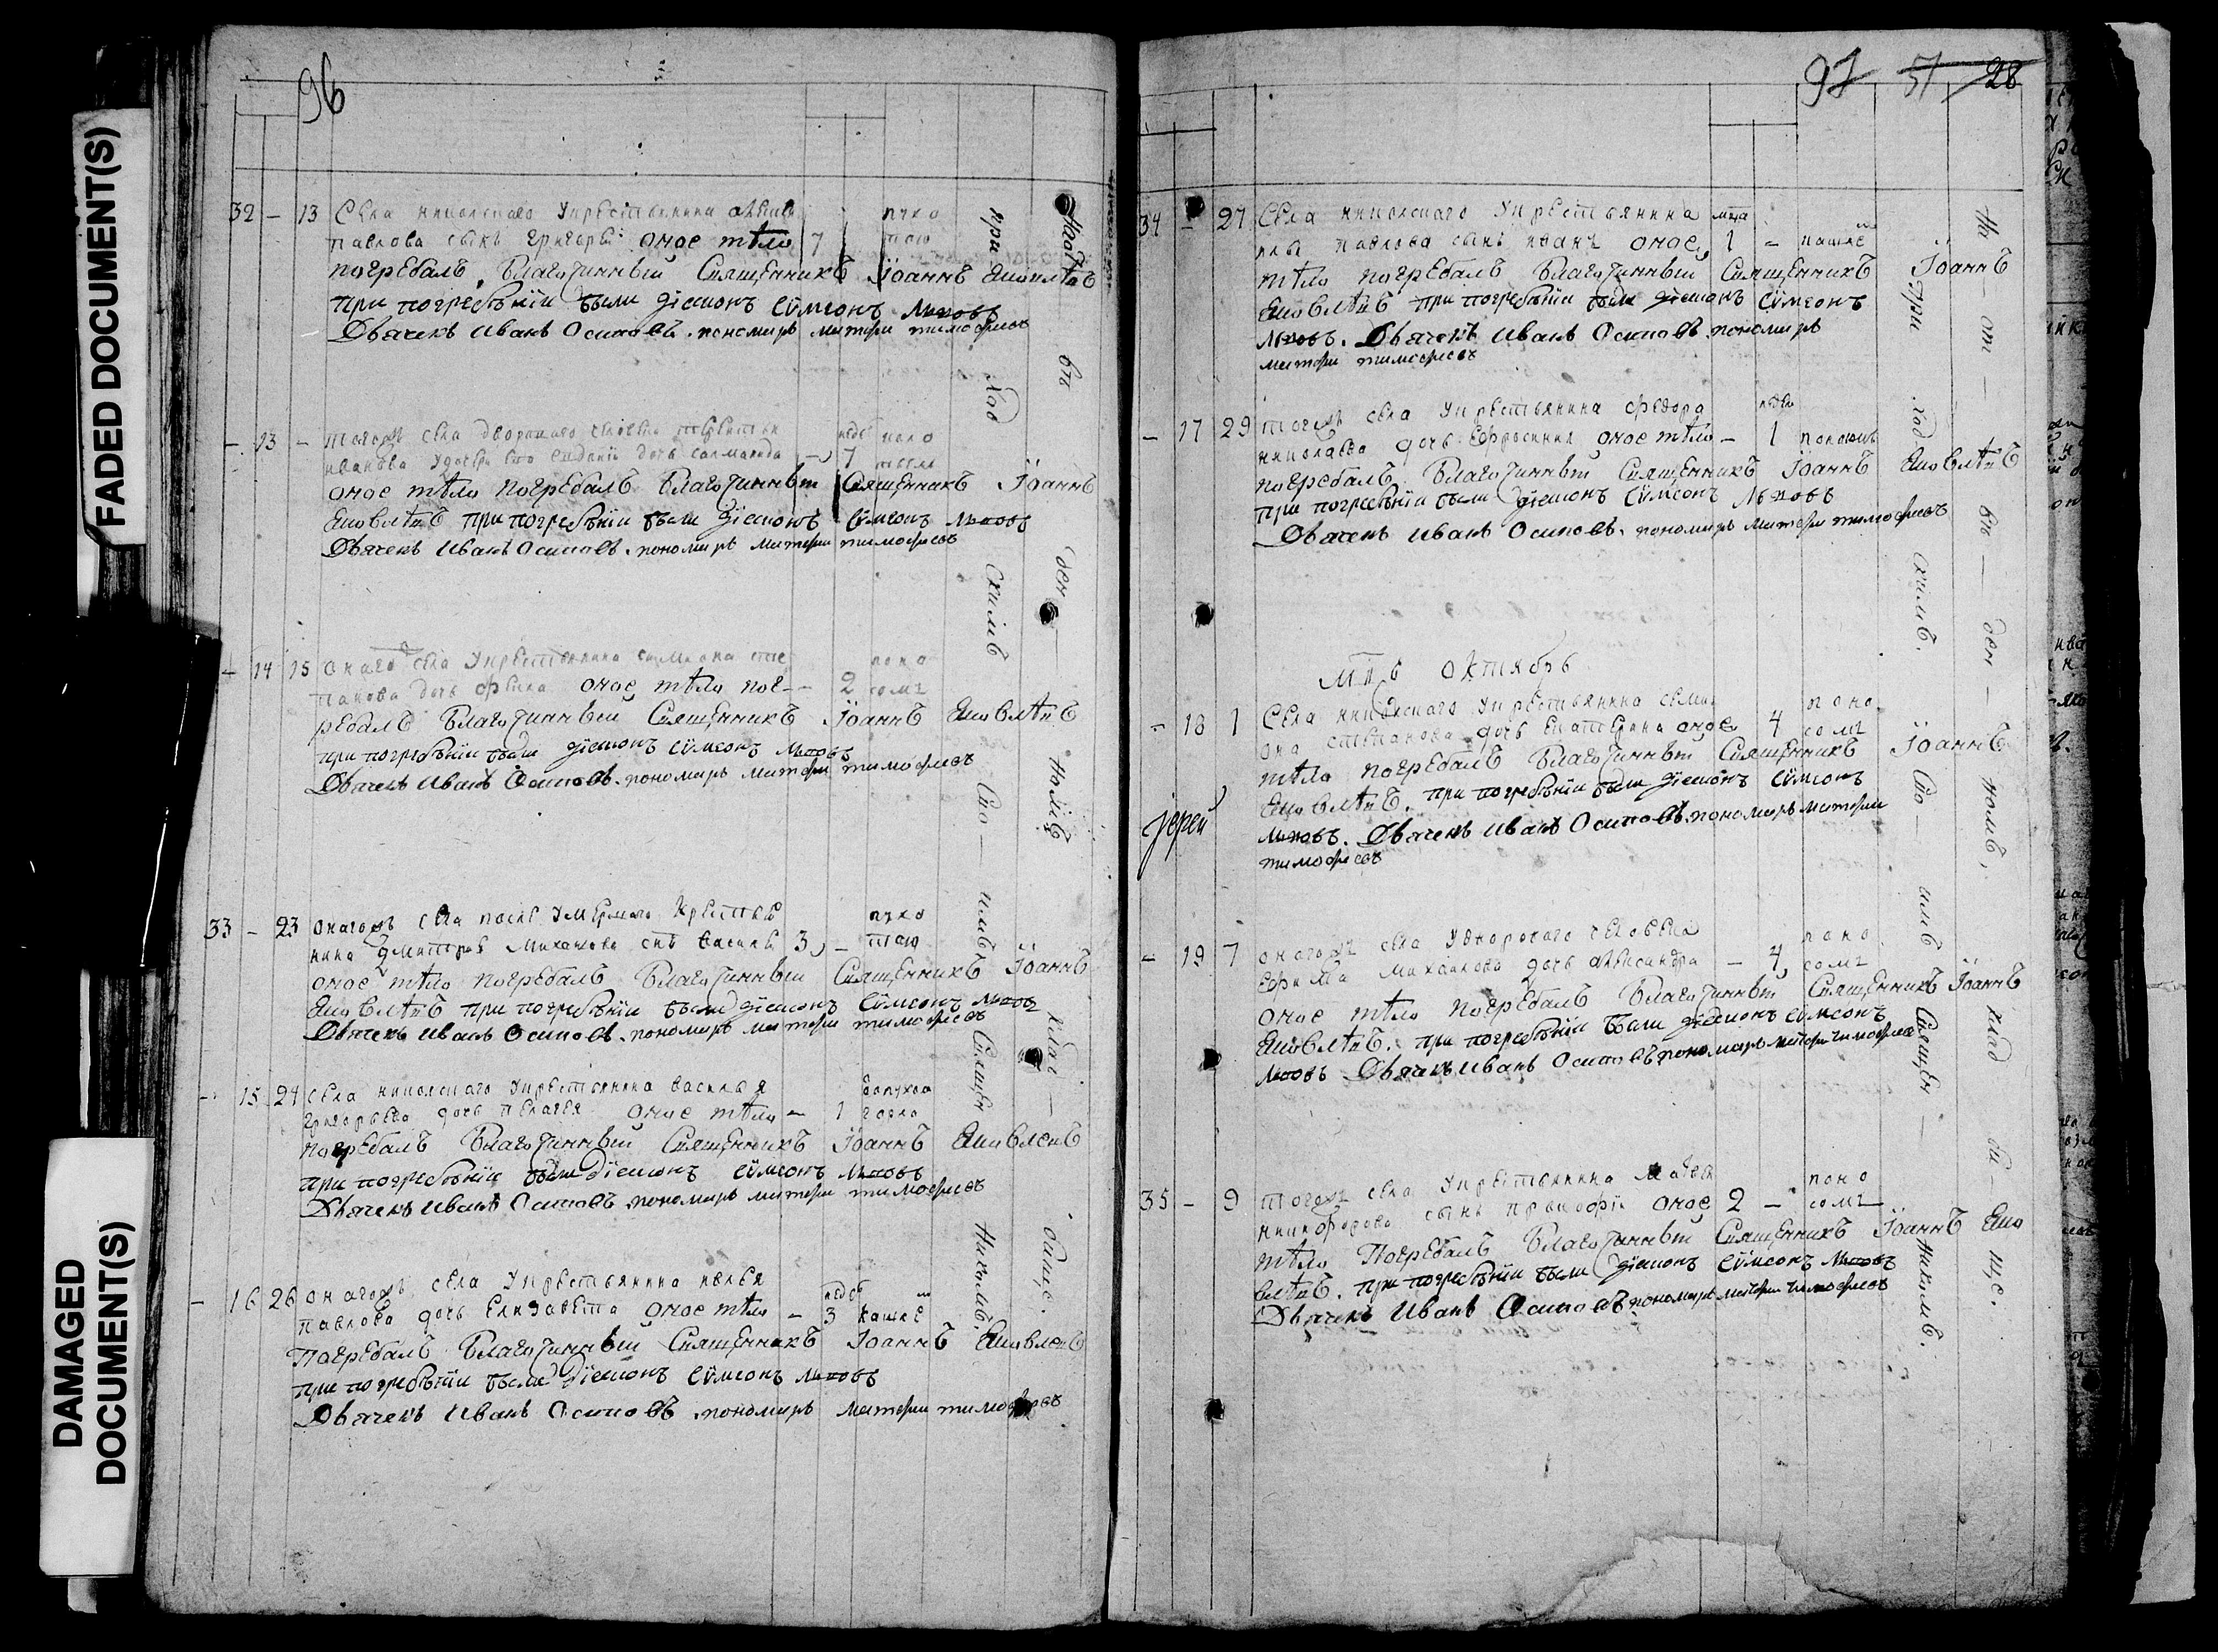 FADED DOCUMENT(S)
DAMAGED DOCUMENT(S)
96
32 – 13 Села никольскаго укрестьянина
павлова сынъ григорей оное тѣло 7
погребалъ благочинный Священникъ Іоаннъ Яковлевъ
при погребѣніи были діаконъ Сѵмеонъ
Дьячекъ Иванъ Осиповъ. пономарь матфеи тимофеевъ
– 13 – тогожъ села двороваго человека
иванова
оное тѣло погребалъ благочинный Священникъ Іоаннъ
Яковлевъ при погребѣніи были діаконъ Сѵмеонъ
Дьячекъ Иванъ Осиповъ. пономарь матфеи тимофеевъ
– 14 15 онаго села укрестьянина симиона сте поно
панова дочь оное тѣло пог – 2 сомъ
ребалъ благочинный Священникъ Іоаннъ Яковлевъ
при погребѣніи были діаконъ Сѵмеонъ
Дьячекъ Иванъ Осиповъ. пономарь матфеи тимофеевъ
33 – 23 онагожъ села после умершаго крестья
нина дмитрия Михайлова снъ василей 3 –
оное тѣло погребалъ благочинный Священникъ Іоаннъ
Яковлевъ при погребѣніи были діаконъ Сѵмеонъ
Дьячекъ Иванъ Осиповъ. пономарь матфеи тимофеевъ
– 15 24 села никольскаго укрестьянина василья
григорьева дочь пелагея оное тѣло – 1 горла
погребалъ благочинный Священникъ Іоаннъ Яковлевъ
при погребѣніи были діаконъ Сѵмеонъ
Дьячекъ Иванъ Осиповъ. пономарь матфеи тимофеевъ
– 16 26 онагожъ села укрестьянина
павлова дочь Елизавета оное тѣло – 3 кашле
погребалъ благочинный Священникъ Іоаннъ Яковлевъ
при погребѣніи были діаконъ Сѵмеонъ
Дьячекъ Иванъ Осиповъ. пономарь матфеи тимофеевъ
При ход скимъ Сиящен Никимъ.
97 51 28
34 – 27 Села никольскаго укрестьянина мца
ильи павлова сынъ иванъ оное 1 – кашле
тѣло погребалъ благочинный Священникъ Іоаннъ
Яковлевъ при погребѣніи были діаконъ Сѵмеонъ
Дьячекъ Иванъ Осиповъ. пономарь
матфеи тимофеевъ
– 17 29 тогожъ села укрестьянина федора
николаева дочь Ефросиния оное тѣло – 1
погребалъ благочинный Священникъ Іоаннъ Яковлевъ
при погребѣніи были діаконъ Сѵмеонъ
Дьячекъ Иванъ Осиповъ. пономарь матфеи тимофеевъ
октябрь
– 18 1 Села никольскаго укрестьянина сими поно
она степанова дочь екатерина оное 4 сомъ
тѣло погребалъ благочинный Священникъ Іоаннъ
Яковлевъ. при погребѣніи были діаконъ Сѵмеонъ
Дьячекъ Иванъ Осиповъ. пономарь матфеи
тимофеевъ
іерей
– 19 7 онагожъ села удворового человека поно
ефима михайлова дочь александра – 4 сомъ
оное тѣло погребалъ благочинный Священникъ Іоаннъ
Яковлевъ. при погребѣніи были діаконъ Сѵмеонъ
Дьячекъ Иванъ Осиповъ пономарь матфеи тимофеев
35 – 9 тогожъ села укрестьянина поно
никифорова сынъ прокофи оное 2 – сомъ
тѣло погребалъ благочинный Священникъ Іоаннъ Яко
влевъ. при погребѣніи были діаконъ Сѵмеонъ
Дьячекъ Иванъ Осиповъ пономарь матфеи тимофеевъ
При ход скимъ. Священ – никимъ.
На – от – вѣ – ден – номъ, клад – би – ще.